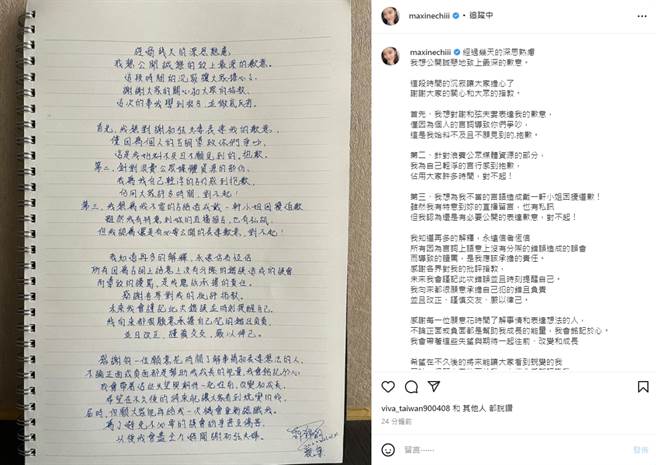 經過幾天的深思熟慮
我想公開誠懇的致上最深的歉意。
這段時間的沉寂讓大家擔心了
謝謝大家的關心和大眾的指教。
首先，我想對謝和弦夫妻表達我的歉意，
僅因為個人的言詞導致你們爭吵，
這是我始料不及且不願見到的，抱歉。
第二、針對浪費公眾媒體資源的部份，
我為我自己輕浮的言行感到抱歉，
佔用大家許多時間，對不起！
第三、我想為我不當的言語造成戴一軒小姐困擾道歉
雖然我有特意到妳的直播留言，也有私訊
但我認為還是有必要公開的表達歉意，對不起！
我知道再多的解釋，永遠信者恆信
所有因為言詞上語意上沒有分際的錯誤造成的誤會
所導致的謾罵，是我應該承擔的責任。
感謝各界對我的批評指教，
未來我會謹記此次錯誤並時刻提醒自己
我向來都很願意承擔自己犯的錯且負責
並且改正、謹慎交友、嚴以律己。
感謝每一位願意花時間了解事情和表達想法的人，
不論正面或負面都是幫助我成長的能量，我會銘記於心
我會帶著這些失望與期待一起往前，改變和成長
希望在不久後的將來能讓大家看到蛻變的我
maxinechiii • 追蹤中
maxinechiii 經過幾天的深思熟慮
我想公開誠懇地致上最深的歉意。
這段時間的沉寂讓大家擔心了
謝謝大家的關心和大眾的指教。
首先，我想對謝和弦夫妻表達我的歉意，
僅因為個人的言詞導致你們爭吵，
這是我始料不及且不願見到的，抱歉。
第二、針對浪費公眾媒體資源的部分，
我為自己輕浮的言行感到抱歉，
佔用大家許多時間，對不起！
第三、我想為我不當的言語造成戴一軒小姐困擾道歉！
雖然我有特意到妳的直播留言，也有私訊
但我認為還是有必要公開的表達歉意，對不起！
我知道再多的解釋，永遠信者恆信
所有因為言詞上語意上沒有分際的錯誤造成的誤會
而導致的謾罵，是我應該承擔的責任。
感謝各界對我的批評指教，
未來我會謹記此次錯誤並且時刻提醒自己。
我向來都很願意承擔自己犯的錯且負責
並且改正、謹慎交友、嚴以律己。
感謝每一位願意花時間了解事情和表達想法的人，
不論正面或負面都是幫助我成長的能量，我會銘記於心。
我會帶著這些失望與期待一起往前、改變和成長
希望在不久後的將來能讓大家看到蛻變的我
viva_taiwan900408 和 其他人 都說讚
24 分鐘前
留言⋯⋯
發佈